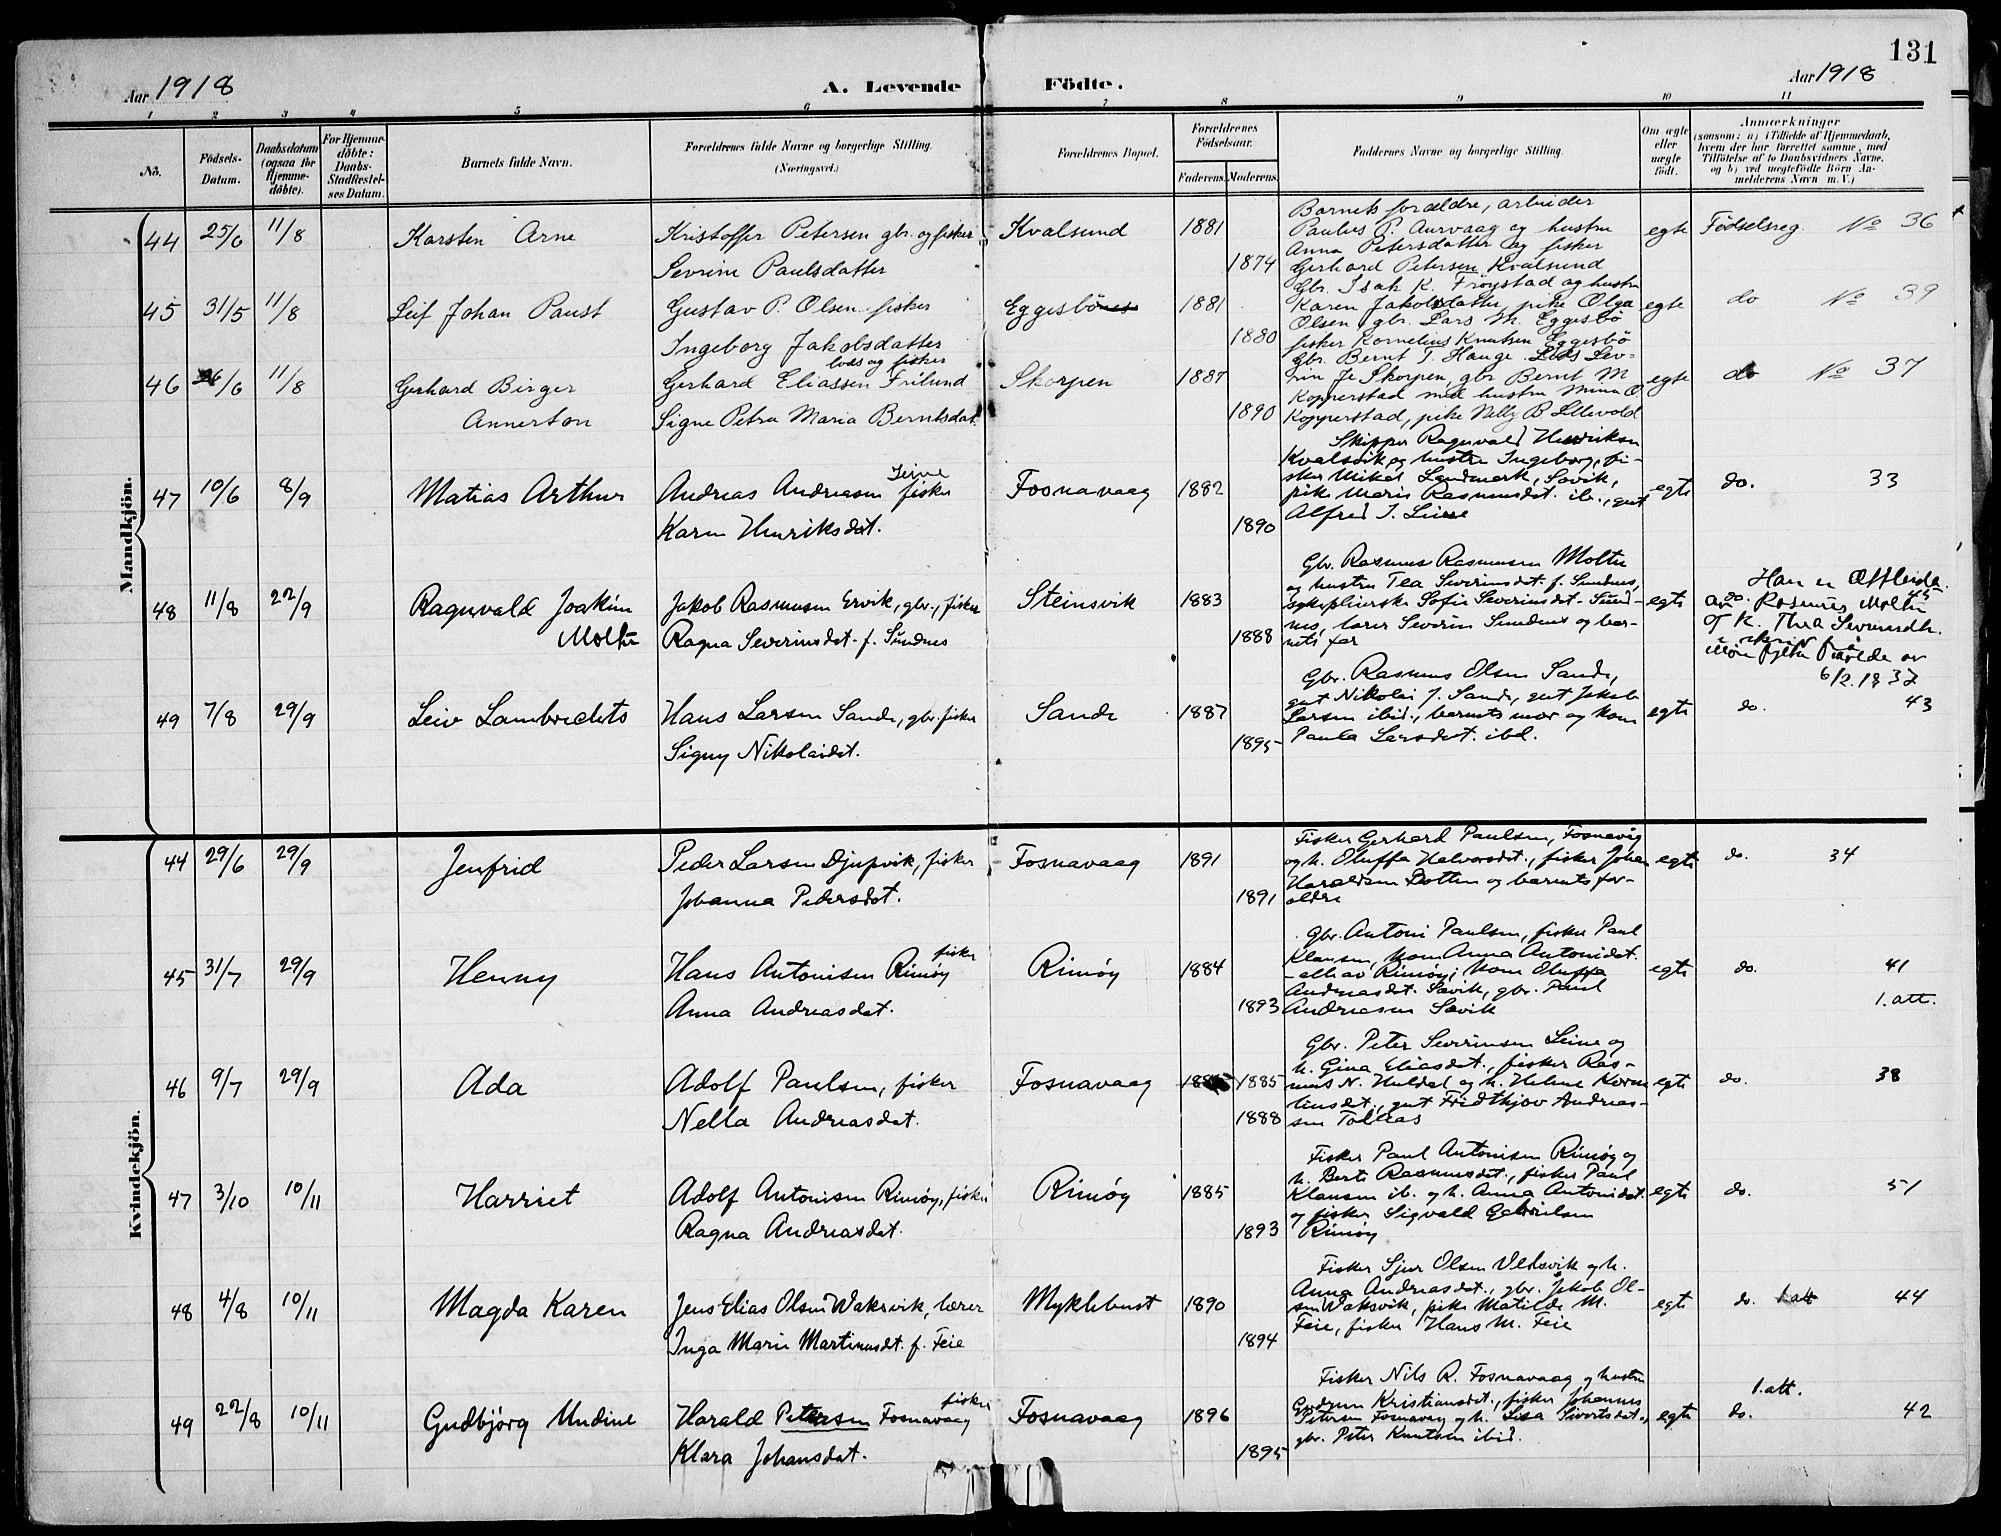 131
Aar 1918
A. Levende Födte.
Aar 1918
1 2 3 4 5 6 7 8 9 10 11
No.
Födsels-
Datum.
Daabsdatum
(ogsaa for
Hjemme-
döbte).
For Hjemme-
döbte:
Daabs-
Stadfæstel-
ses Datum.
Barnets fulde Navn.
Forældrenes fulde Navne og borgerlige Stilling.
(Næringsvei.)
Forældrenes Bopæl.
Forældrenes
Födselsaar.
Faderens. Moderens.
Faddernes Navne og borgerlige Stilling.
Om ægte
eller
uægte
födt.
Anmærkninger
(saasom: a) i Tilfælde af Hjemmedaab,
hvem der har forrettet samme, med
Tilföielse af to Daabsvidners Navne.
og b) ved uegtefödte Börn An-
melderens Navn m. V.)
Mandkjön.
44 25/6 11/8 Karsten Arne
Kristoffer Petersen gbr. og fisker
Sevrine Paulsdatter
Kvalsund 1881
1874
Barnets forældre, arbeider
Paulus P. Aurvaag og hustru
Anna Petersdatter og fisker
Gerhard Petersen Kvalsund
egte Födselsreg. No 36
45 31/5 11/8 Leif Johan Paust
Gustav P. Olsen fisker
Ingeborg Jakobsdatter
Eggesbönes 1881
1880
Gbr. Isak K. Fröystad og hustru
Karen Jakobsdatter, pike Olga
Olsen, gbr. Lars M. Eggesbö
fisker Kornelius Knutsen Eggesbö
egte do No 39
46 26/6 11/8 Gerhard Birger
Annerton
lods og fisker
Gerhard Eliassen Frilund
Signe Petra Maria Berntsdat.
Skorpen 1887
1890
Gbr. Bernt T. Hauge. Lods Sev-
rin J. Skorpen, gbr Bernt M
Kopperstad med hustru Minna O.
Kopperstad, pike Nelly B Lillevold
egte do No 37
47 10/6 8/9 Matias Arthur
Leine
Andreas Andreasen fisker
Karen Henriksdat.
Fosnavaag 1882
1890
Skipper Ragnvald Henriksen
Kvalsvik og hustru Ingeborg, fi-
sker Mikal Landmark, Sævik,
pike Marie Rasmusdat. ib., gut
Alfred J. Leine
egte do. 33
48 11/8 22/9 Ragnvald Joakim
Moltu
Jakob Rasmusen Ervik, gbr., fisker
Ragna Severinsdat. f. Sundnes
Steinsvik 1883
1888
Gbr. Rasmus Rasmusen Moltu
og hustru Tea Severinsdat. f. Sundnes,
sykepleierske Sofie Severinsdat. Sund-
nes, lærer Severin Sundnes og bar-
nets far
egte do. 45
Han er
av Rasmus Moltu
og K. Thea Severinsdt.
6/2. 1937
49 7/8 29/9 Leiv Lambrechts
Hans Larsen Sande, gbr. fisker
Signy Nikolaidat.
Sande 1887
1895
Gbr. Rasmus Olsen Sande,
gut Nikolai J. Sande, gut Jakob
Larsen ibid., barnets mor og kone
Paula Larsdat. ibd.
egte do. 43
Kvindekjön.
44 29/6 29/9 Jenfrid
Peder Larsen Djupvik, fisker
Johanna Pedersdat.
Fosnavaag 1891
1891
Fisker Gerhard Paulsen, Fosnavåg
og h. Oluffa Halvorsdat., fisker Johan
Haraldsen Botten og barnets for-
ældre
egte do. 34
45 31/7 29/9 Henny
fisker
Hans Antonisen Rimøy
Anna Andreasdat.
Rimøy 1884
1893
Gbr. Antoni Paulsen, fisker Paul
Klausen, kone Anna Antonidat.
– alle av Rimøy; kone Oluffa
Andreasdat. Sævik, gbr. Paul
Andreasen Sævik
egte do. 41
1. att.
46 9/7 29/9 Ada
Adolf Paulsen, fisker
Nella Andreasdat.
Fosnavaag 1885
1888
Gbr. Peter Severinsen Leine og
h. Gina Eliasdat., fisker Ras-
mus N. Huldal og h. Helene Korne
liusdat., gut Fridthjov Andreas-
sen Tobias
egte do. 38
47 3/10 10/11 Harriet
Adolf Antonisen Rimøy, fisker
Ragna Andreasdat.
Rimøy 1885
1893
Fisker Paul Antonisen Rimøy og
h. Berte Rasmusdat., fisker Paul
Klausen ib. og h. Anna Antonidat.
og fisker Sigvald Gabrielsen
Rimøy
egte do. 51
48 4/8 10/11 Magda Karen
Jens Elias Olsen Waksvik, lærer
Inga Marie Martinusdt. f. Feie
Myklebust 1890
1894
Fisker Sjur Olsen Vedsvik og h.
Anna Andreasdat., gbr. Jakob Ol-
sen Waksvik, pike Matilde M.
Feie, fisker Hans M. Feie
egte do. 1 att 44
49 22/8 10/11 Gudbjörg Undine
fisker
Harald Petersen Fosnavaag
Klara Johansdat.
Fosnavaag 1896
1895
Fisker Nils R. Fosnavaag og hustru
Gudrun Kristiansdat., fisker Johannes
Petersen Fosnavag og h. Lisa Sivertsdat. og
gbr. Peter Knutsen ibid.
egte do. 1. att. 42